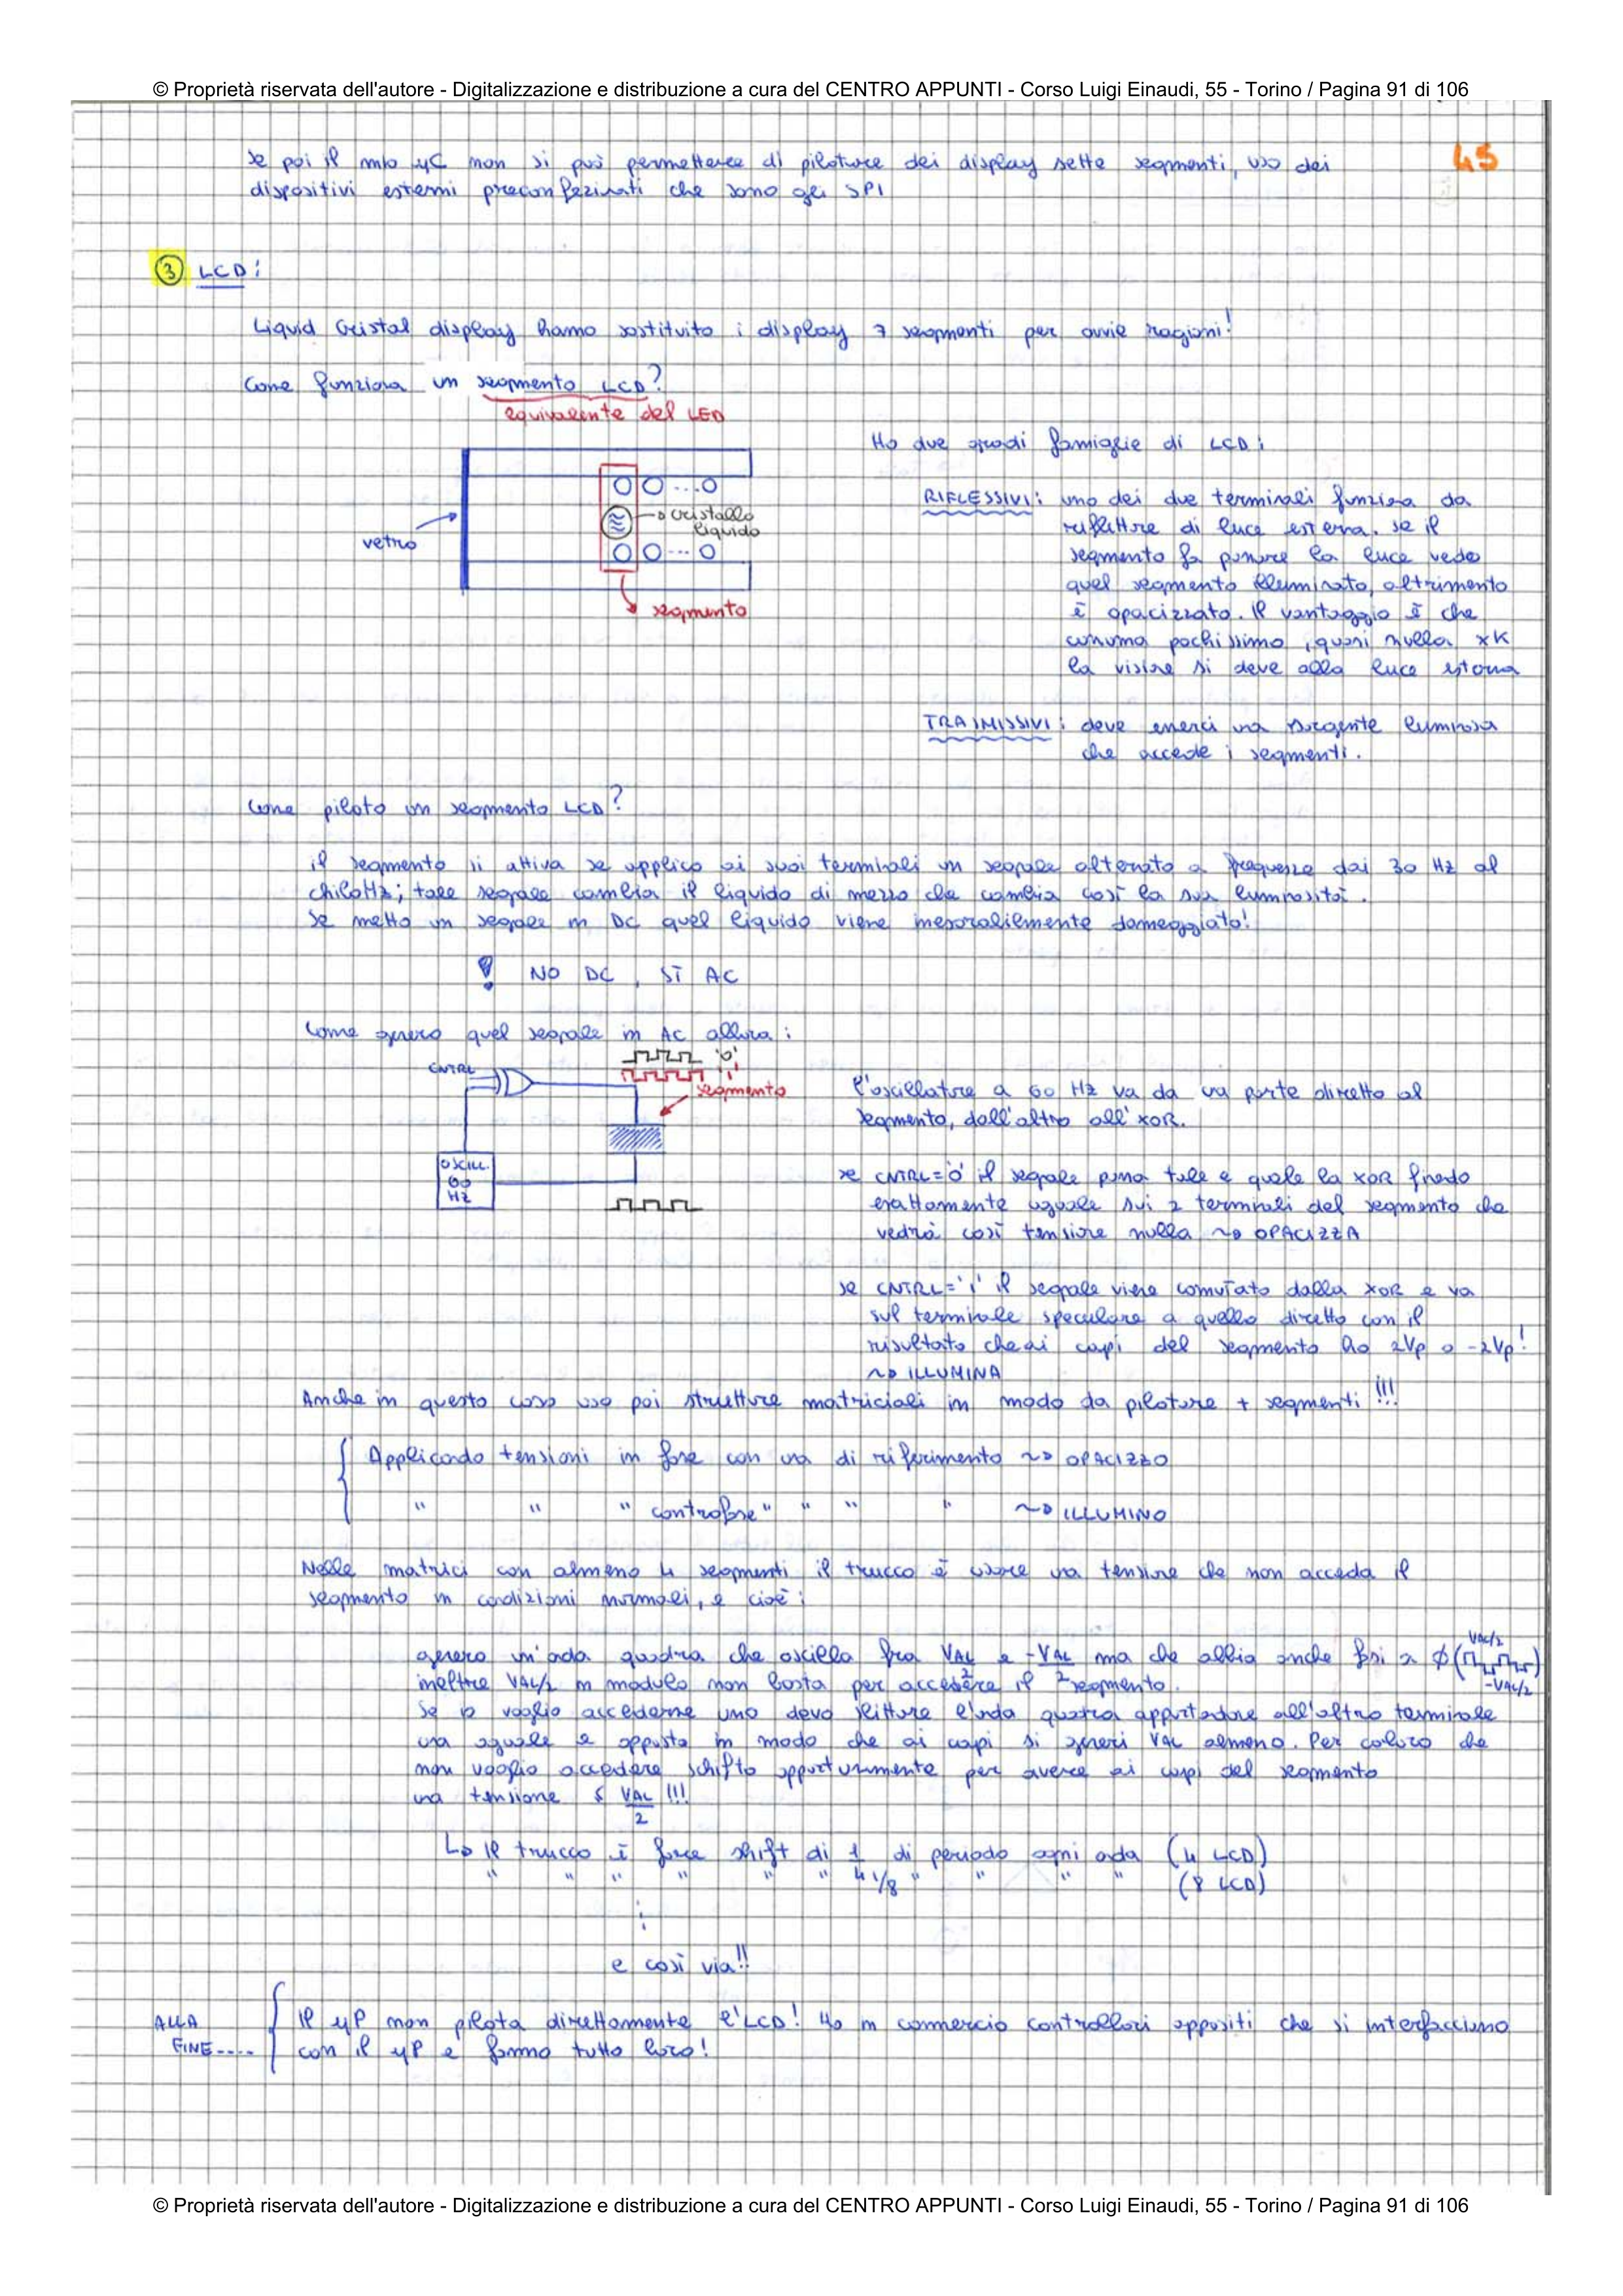 © Proprietà riservata dell'autore - Digitalizzazione e distribuzione a cura del CENTRO APPUNTI - Corso Luigi Einaudi, 55 - Torino / Pagina 91 di 106
45
Se poi il mio µC non si può permettere di pilotare dei display sette segmenti, uso dei
dispositivi esterni preconfezinati che sono gli SPI
3 LCD:
Liquid Cristal display hanno sostituito i display 7 segmenti per ovvie ragioni!
Come funziona un segmento LCD?
equivalente del LED
vetro
cristallo
liquido
segmento
Ho due gradi famiglie di LCD:
RIFLESSIVI: uno dei due terminali funziona da
riflettore di luce esterna. Se il
segmento fa passare la luce vedo
quel segmento illuminato, altrimento
è opacizzato. Il vantaggio è che
consuma pochissimo, quasi nulla xK
la visione si deve alla luce esterna
TRASMISSIVI: deve esserci una sorgente luminosa
che accede i segmenti.
Come piloto un segmento LCD?
il segmento si attiva se applico ai suoi terminali un segnale alternato a frequenza dai 30 Hz al
chiloHz; tale segnale cambia il liquido di mezzo che cambia così la sua luminosità.
Se metto un segnale in DC quel liquido viene inesorabilmente danneggiato!
! NO DC, SÌ AC
Come genero quel segnale in AC allora:
CNTRL
'0'
'1'
segmento
OSCILL.
60
Hz
l'oscillatore a 60 Hz va da una parte diretto al
segmento, dall'altro all'XOR.
se CNTRL='0' il segnale passa tale e quale la XOR finedo
esattamente uguale sui 2 terminali del segmento che
vedrà così tensione nulla ~> OPACIZZA
se CNTRL='1' il segnale viene comutato dalla XOR e va
sul terminale speculare a quello diretto con il
risultato che ai capi del segmento ho 2Vp o -2Vp!
~> ILLUMINA
Anche in questo caso uso poi strutture matriciali in modo da pilotare + segmenti!!!
Applicando tensioni in fase con una di riferimento ~> OPACIZZO
" " " controfase" " " " ~> ILLUMINO
Nelle matrici con almeno 4 segmenti il trucco è usare una tensione che non acceda il
segmento in condizioni normali, e cioè:
genero un'onda quadra che oscilla fra VAL/2 e -VAL/2 ma che abbia anche fasi a ϕ ( VAL/2 -VAL/2 )
inoltre VAL/2 in modulo non basta per accedere il segmento.
Se io voglio accederne uno devo shiftare l'onda quadra apportandone all'altro terminale
una uguale e opposta in modo che ai capi si generi VAL almeno. Per coloro che
non voglio accedere schifto opportunamente per avere ai capi del segmento
una tensione ≤ VAL/2 !!!
↳ Il trucco è fare shift di 1/4 di periodo ogni onda (4 LCD)
" " " " " " 1/8 " " " " (8 LCD)
⋮
e così via!!
ALLA
FINE....
Il µP non pilota direttamente l'LCD! Ho in commercio controllori appositi che si interfacciano
con il µP e fanno tutto loro!
© Proprietà riservata dell'autore - Digitalizzazione e distribuzione a cura del CENTRO APPUNTI - Corso Luigi Einaudi, 55 - Torino / Pagina 91 di 106